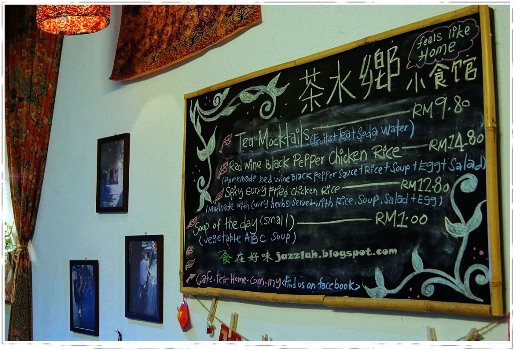 feels like
Home
茶水鄉
小食馆
Tea Mocktails (Fruit+Tea+Soda Water) RM9.80
Red Wine Black Pepper Chicken Rice RM14.80
(Homemade Red Wine Black pepper Sauce+Rice+Soup+Egg+Salad)
Spicy Curry Fried Chicken Rice RM12.80
(Marinade with Curry herbs served with Rice, Soup, Salad+Egg)
Soup of the day (small) RM1.00
(Vegetable ABC Soup)
食在好味 jazzlah.blogspot.com
Cafe-Tea-Home.Com.my <find us on facebook>